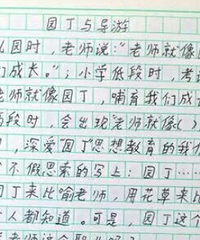 园丁与导游
儿园时，老师说："老师就像园
们成长。"；小学低段时，老
老师就像园丁，哺育我们成
高段时，会出现"老师就像( )
，深爱"园丁"思想教育的我
不假思索的写上：园丁…
园丁来比喻老师，用花草来比
人都知道。可是，园丁这个